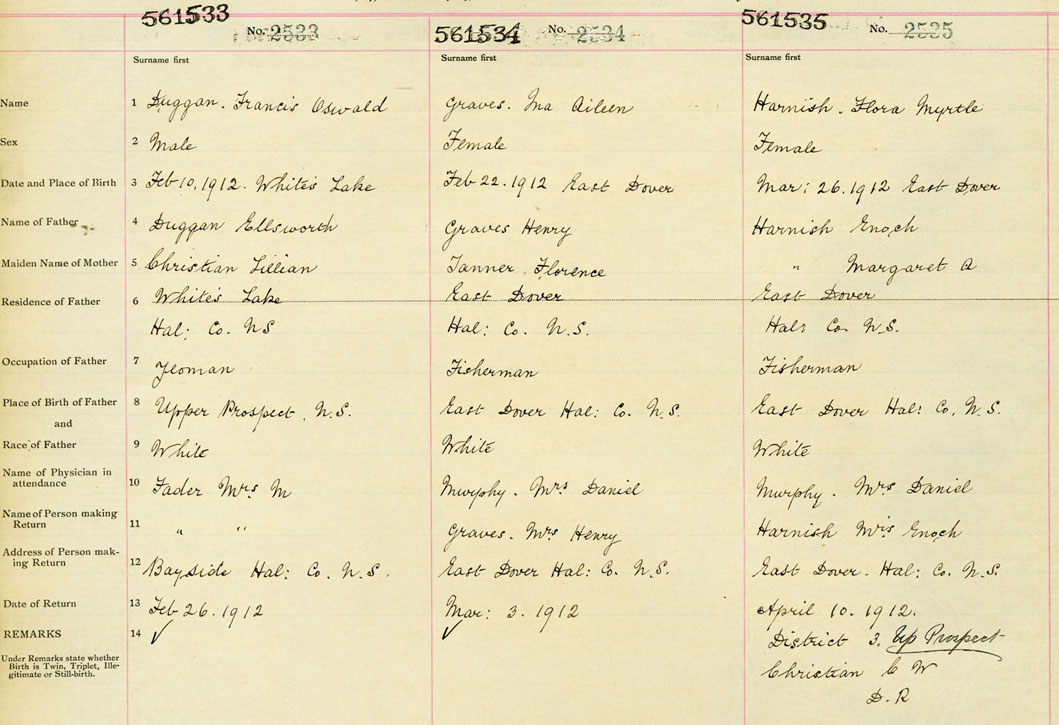 561533 No. 2533 561534 No. 2534 561535 No. 2535
Surname first Surname first Surname first
Name 1 Duggan. Francis Oswald Graves. Ina Aileen Harnish. Flora Myrtle
Sex 2 Male Female Female
Date and Place of Birth 3 Feb 10, 1912. White's Lake Feb 22. 1912 East Dover Mar: 26. 1912 East Dover
Name of Father 4 Duggan Ellsworth Graves Henry Harnish Enoch
Maiden Name of Mother 5 Christian Lillian Tanner. Florence " Margaret A
Residence of Father 6 White's Lake East Dover East Dover
Hal: Co. NS Hal: Co. N.S. Hal: Co. N.S.
Occupation of Father 7 Yeoman Fisherman Fisherman
Place of Birth of Father 8 Upper Prospect, N.S. East Dover Hal: Co. N.S. East Dover Hal: Co, N.S.
and
Race of Father 9 White White White
Name of Physician in
attendance 10 Fader Mrs M Murphy. Mrs Daniel Murphy. Mrs Daniel
Name of Person making
Return 11 " " Graves. Mrs Henry Harnish Mrs Enoch
Address of Person mak-
ing Return 12 Bayside Hal: Co. N.S. East Dover Hal: Co. N.S. East Dover. Hal: Co. N.S.
Date of Return 13 Feb 26. 1912 Mar: 3. 1912 April 10. 1912.
REMARKS 14 ✓ ✓ District 3. Up Prospect
Under Remarks state whether
Birth is Twin, Triplet, Ille-
gitimate or Still-birth.
Christian C W
D. R